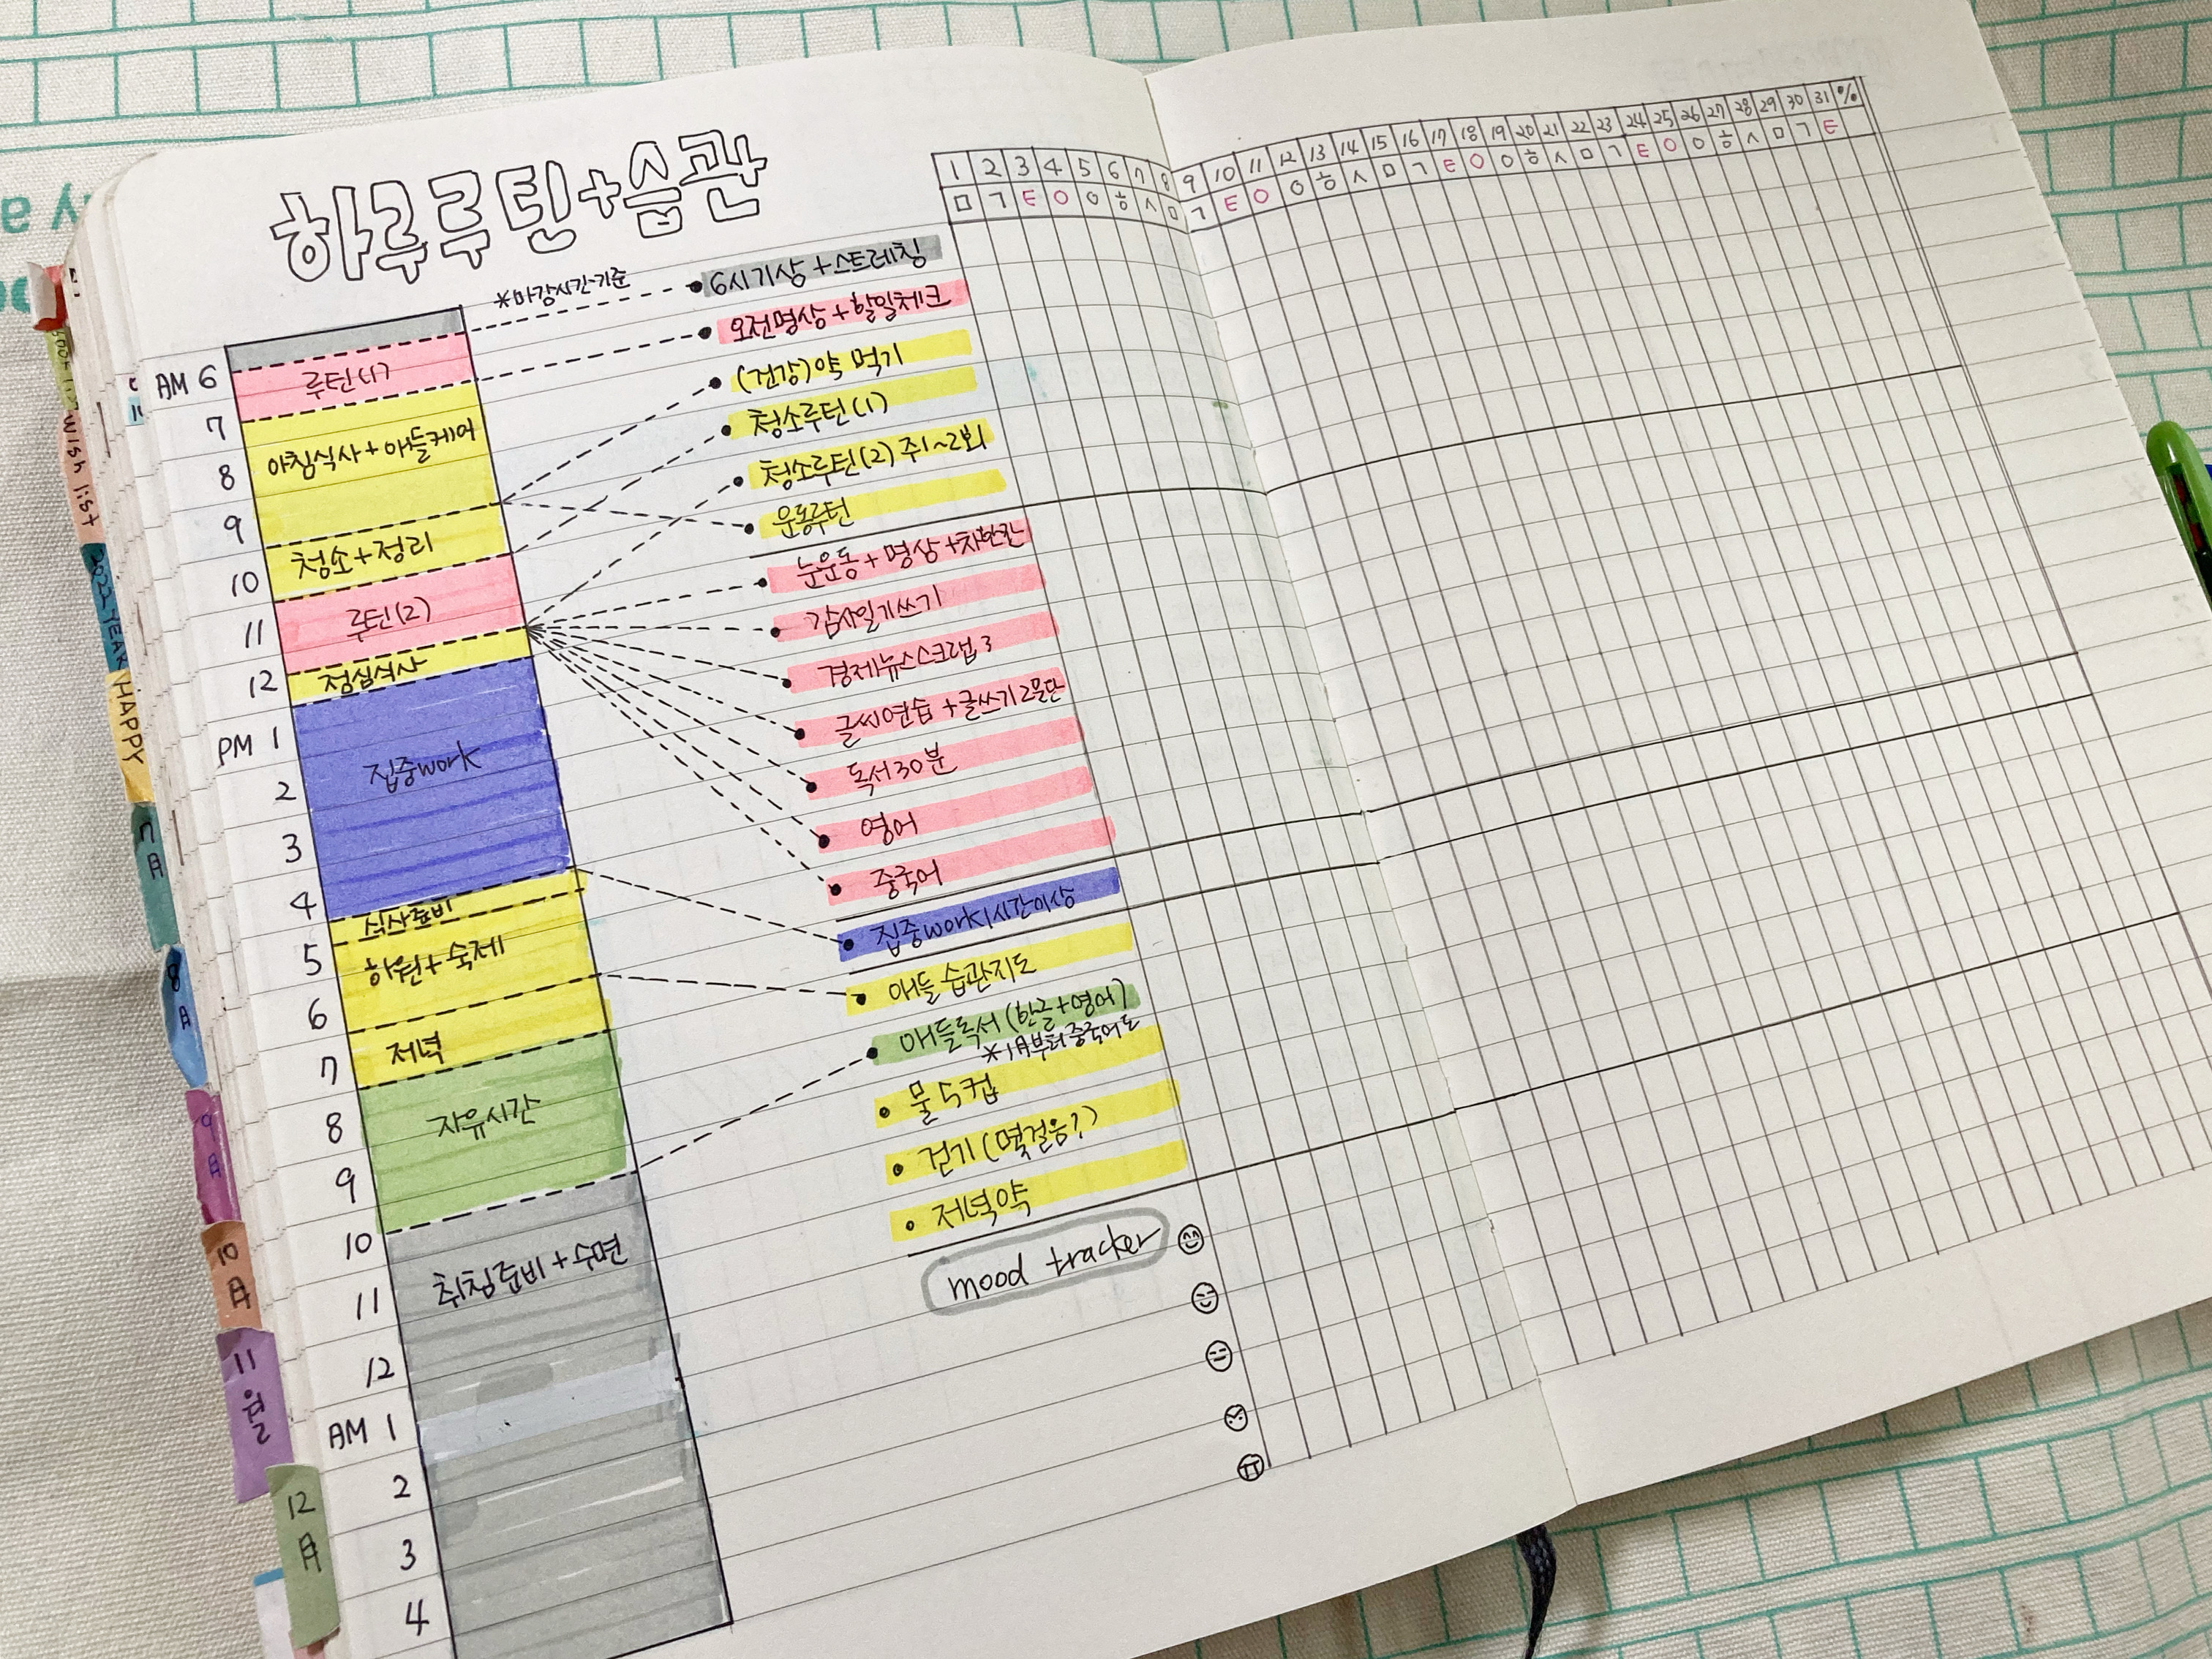 하루루틴+습관
*마감시간기준
AM 6
7
8
9
10
11
12
PM 1
2
3
4
5
6
7
8
9
10
11
12
AM 1
2
3
4
루틴(1)
아침식사+애들케어
청소+정리
루틴(2)
점심식사
집중work
식사준비
하원+숙제
저녁
자유시간
취침준비+수면
6시기상+스트레칭
오전명상+할일체크
(건강)약 먹기
청소루틴(1)
청소루틴(2) 주1~2회
운동루틴
눈운동+명상+차한잔
감사일기쓰기
경제뉴스스크랩 3
글씨연습+글쓰기2문단
독서30분
영어
중국어
집중work1시간이상
애들 습관지도
애들독서(한글+영어)
*1月부터 중국어도
물 5컵
걷기(몇걸음?)
저녁약
mood tracker
1 2 3 4 5 6 7 8 9 10 11 12 13 14 15 16 17 18 19 20 21 22 23 24 25 26 27 28 29 30 31 %
ㅁ ㄱ ㅌ ㅇ ㅇ ㅎ ㅅ ㅁ ㄱ ㅌ ㅇ ㅇ ㅎ ㅅ ㅁ ㄱ ㅌ ㅇ ㅇ ㅎ ㅅ ㅁ ㄱ ㅌ ㅇ ㅇ ㅎ ㅅ ㅁ ㄱ ㅌ
wish list
2022 YEAR
HAPPY
7月
8月
9月
10月
11월
12月